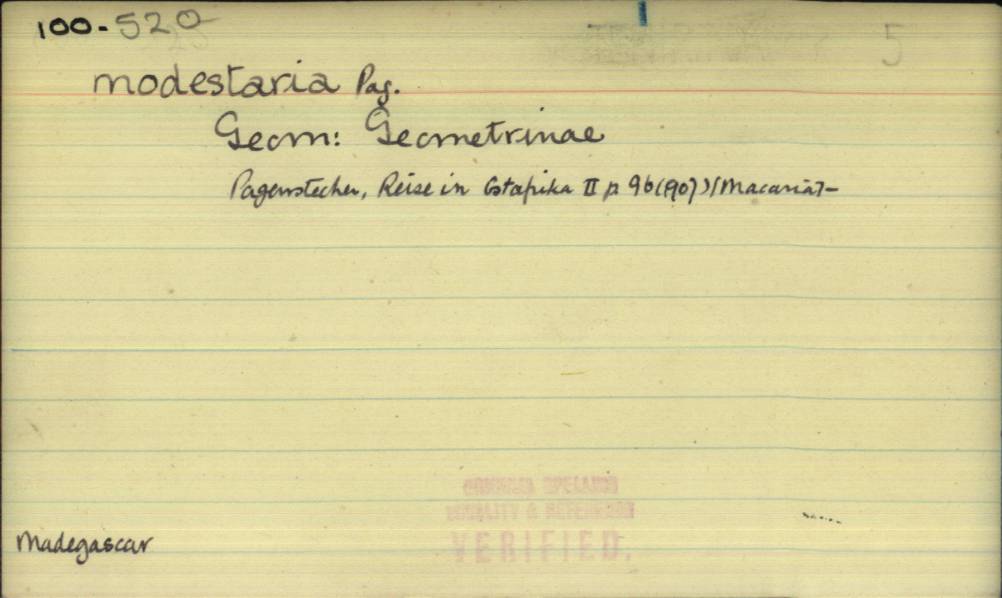 100-520
5
modestaria Pag.
Geom: Geometrinae
Pagenstecher, Reise in Ostafrika II p 96 (907) [Macaria] -
LOCALITY & REFERENCE
VERIFIED.
Madegascar